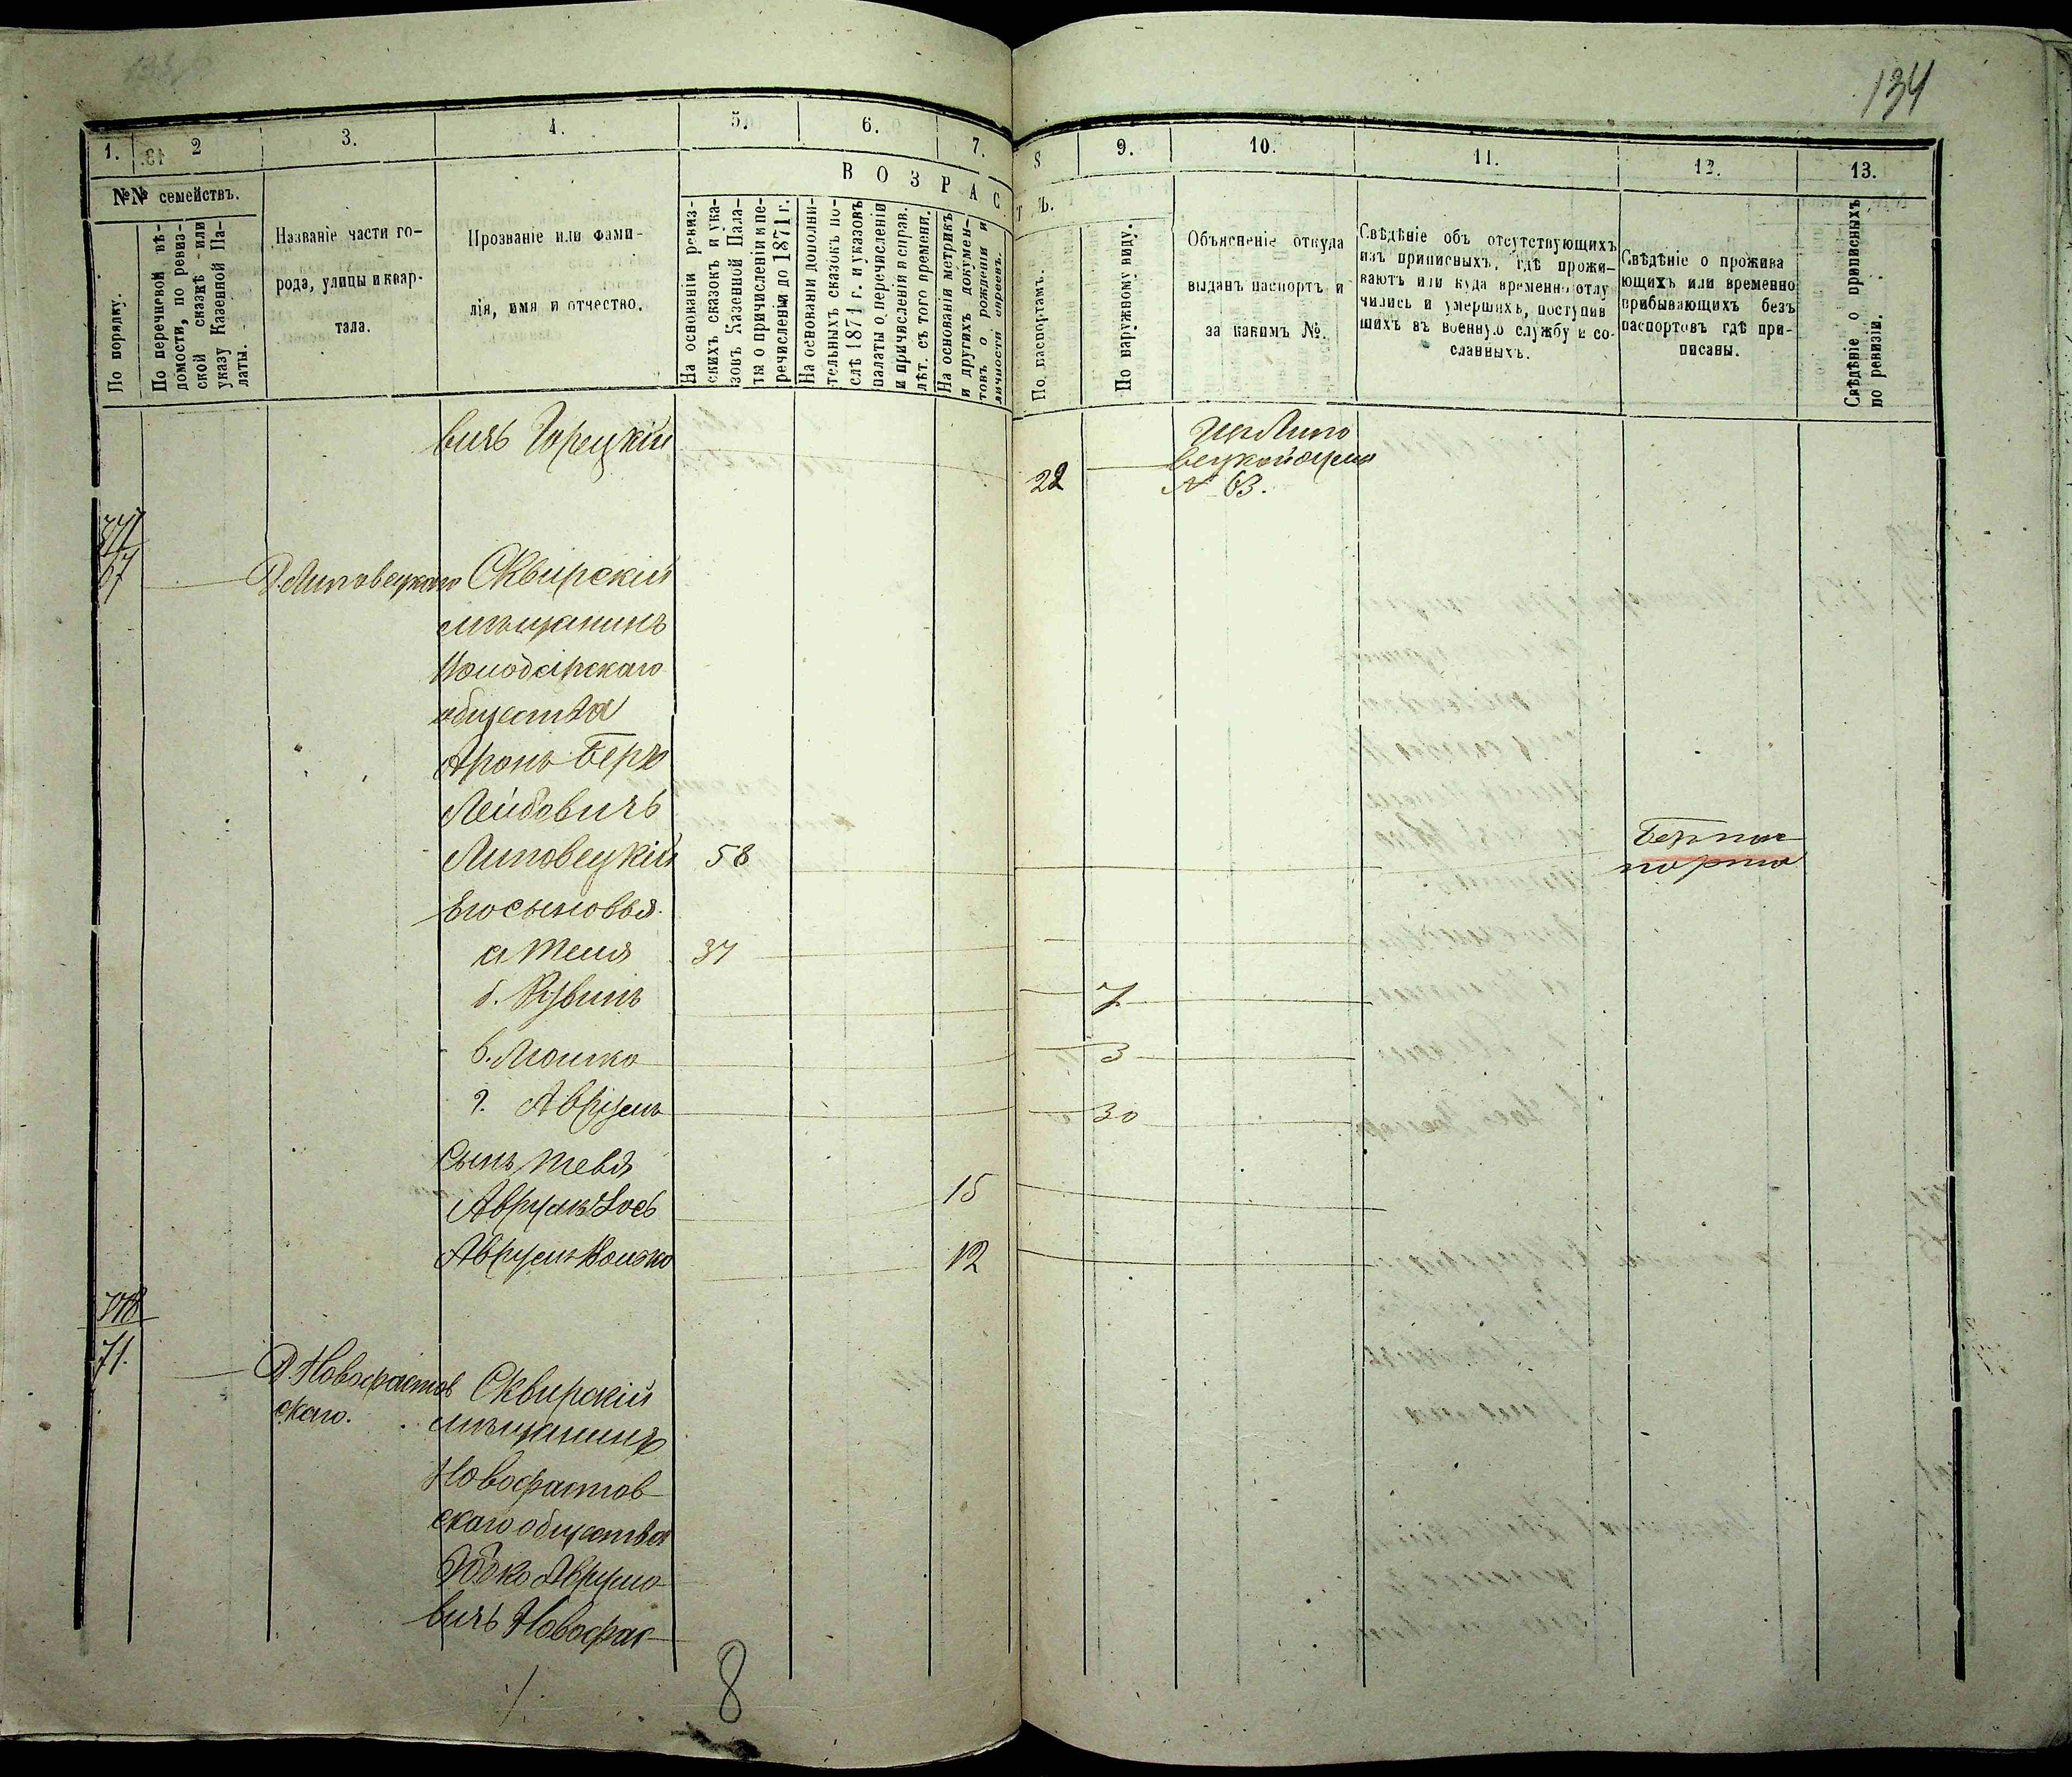 134
1.
2
3.
4.
5.
6.
7.
8
9.
10.
11.
12.
13.
№№ семействъ.
По порядку.
По перечневой вѣ-
домости, по ревиз-
ской сказкѣ или
указу Казенной Па-
латы.
Названіе части го-
рода, улицы и квар-
тала.
Прозваніе или фами-
лія, имя и отчество.
ВОЗРАС
ТЪ.
На основаніи ревиз-
скихъ сказокъ и ука-
зовъ Казенной Пала-
ты о причисленіи и пе-
речисленіи до 1871 г.
На основаніи дополни-
тельныхъ сказокъ по-
слѣ 1871 г. и указовъ
палаты о перечисленіи
и причисленіи и справ.
лѣт. съ того времени.
На основаніи метрикъ
и другихъ докумен-
товъ о рожденіи и
личности евреевъ.
По паспортамъ.
По наружному виду.
Объясненіе откуда
выданъ паспортъ и
за какимъ №.
Свѣдѣніе объ отсутствующихъ
изъ приписныхъ, гдѣ прожи-
ваютъ или куда временно отлу
чились и умершихъ, поступив
шихъ въ военную службу и со-
сланныхъ.
Свѣдѣніе о прожива
ющихъ или временно
прибывающихъ безъ
паспортовъ гдѣ при-
писаны.
Свѣдѣніе о приписныхъ
по ревизіи.
вичъ Горецкій
22
Изъ Липо
вецкой
№ 63.
67
Д. Липовецкаго Сквирскій
мѣщанинъ
Володарскаго
общества
Аронъ Берко
Лейбовичъ
Липовецкій 58
Безъ пас
порта
Его сыновья.
а Тевя 37
б. Рувинъ 7
в. Мошко 3
г. Аврумъ 30
Сынъ Тевя
Аврумъ Іось 15
Аврумъ Волько 12
71.
Д. Новофастов
скаго.
Сквирскій
мѣщанинъ
Новофастов
скаго общества
Юдко Аврумо
вичъ Новофас
8